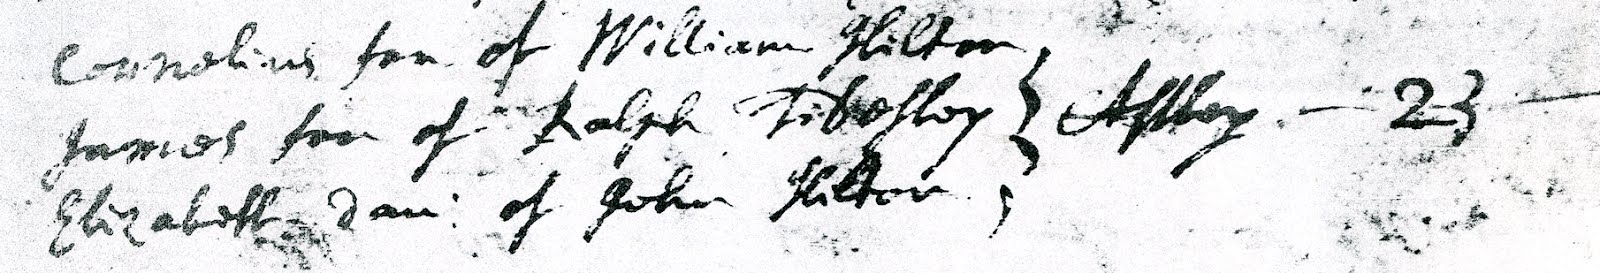 Cornelius son of William Hilton
James son of Ralph Tildesley } Astley — 23 —
Elizabeth Dau: of John Hilton